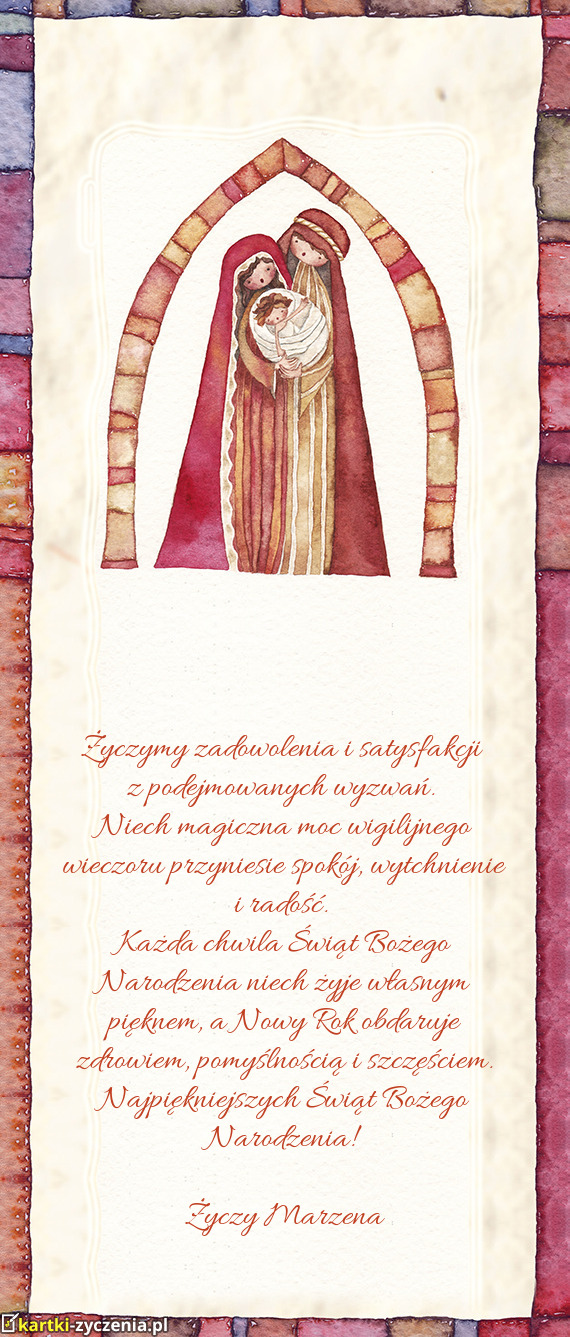 Życzymy zadowolenia i satysfakcji
z podejmowanych wyzwań.
Niech magiczna moc wigilijnego
wieczoru przyniesie spokój, wytchnienie
i radość.
Każda chwila Świąt Bożego
Narodzenia niech żyje własnym
pięknem, a Nowy Rok obdaruje
zdrowiem, pomyślnością i szczęściem.
Najpiękniejszych Świąt Bożego
Narodzenia!
Życzy Marzena
kartki-zyczenia.pl